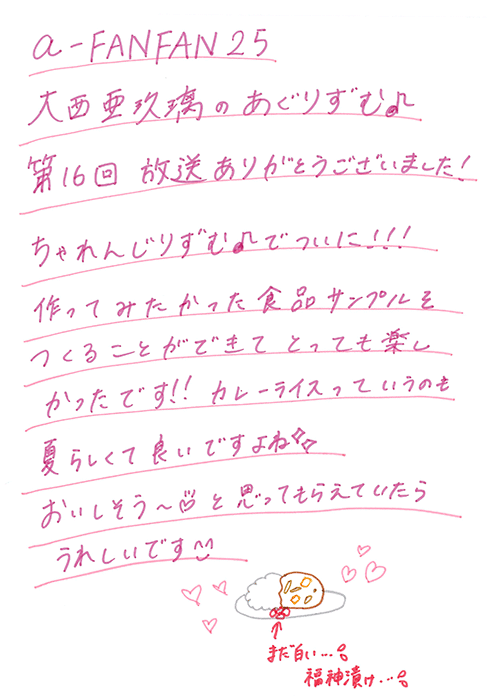 a-FANFAN25
大西亜玖璃のあぐりずむ♪
第16回 放送ありがとうございました!
ちゃれんじりずむ♪でついに!!!
作ってみたかった食品サンプルを
つくることができてとっても楽し
かったです!! カレーライスっていうのも
夏らしくて良いですよね
おいしそう〜と思ってもらえていたら
うれしいです
まだ白い…
福神漬け…